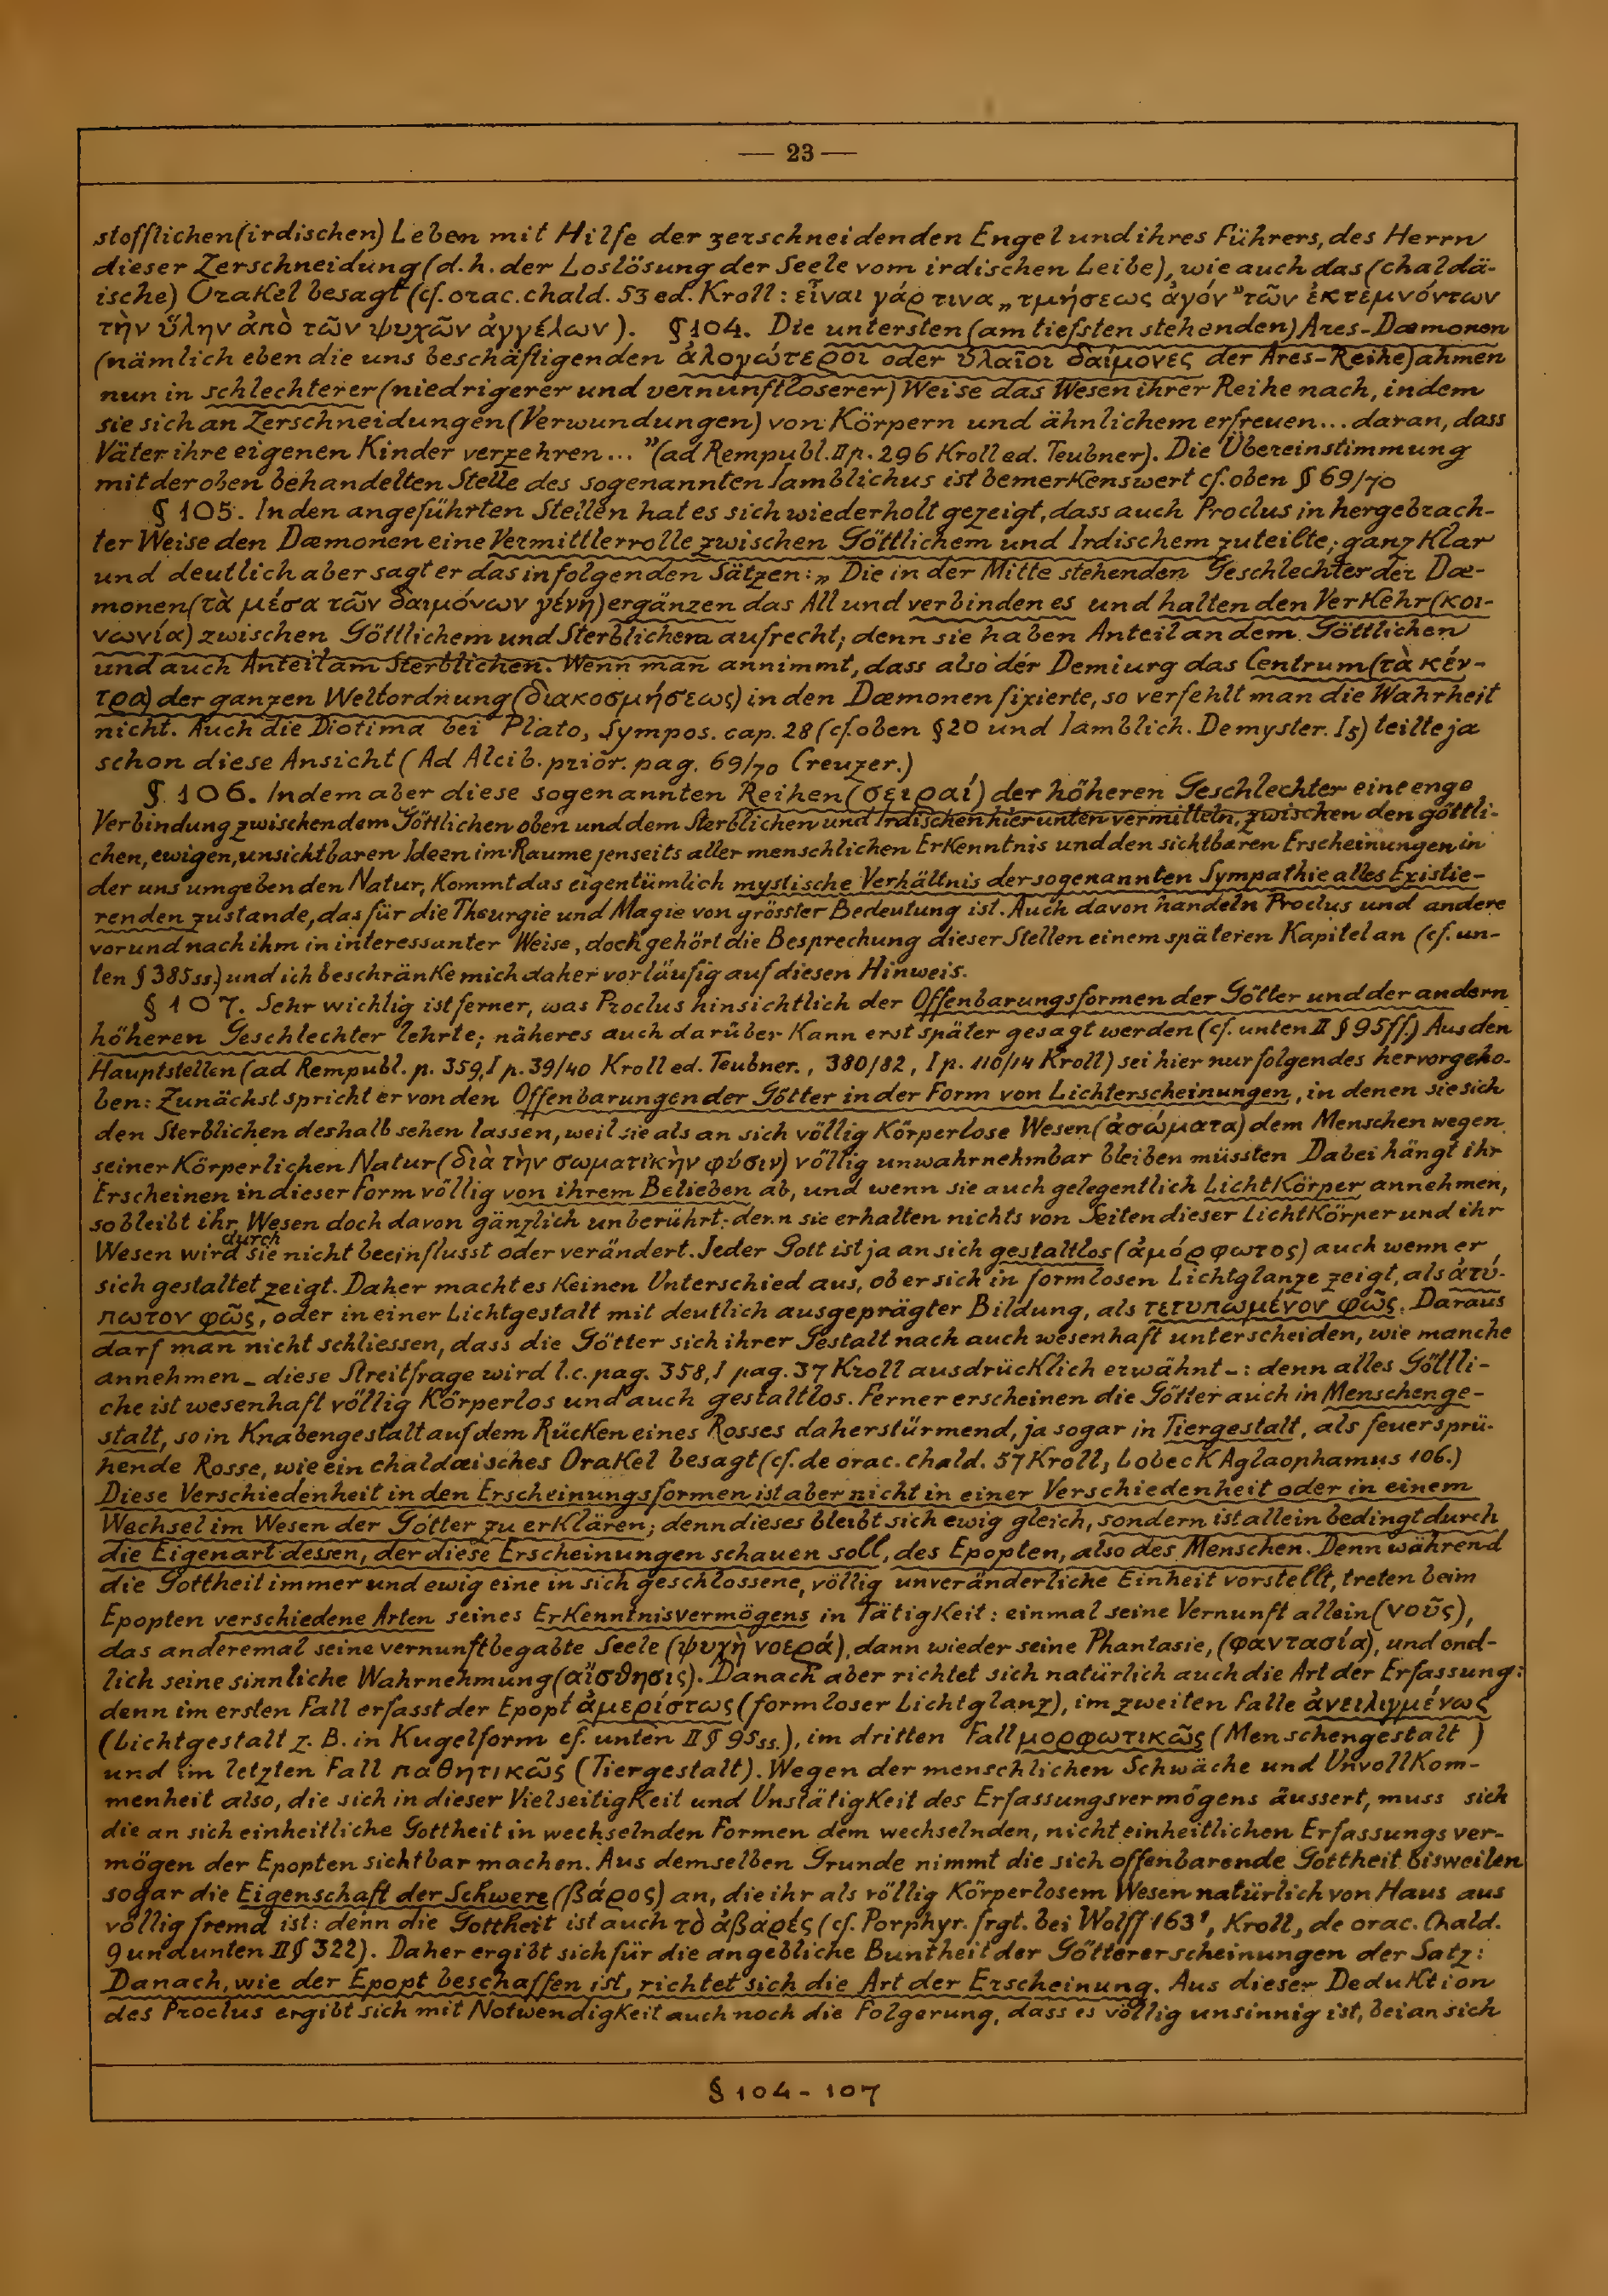 — 23 —
stofflichen (irdischen) Leben mit Hilfe der zerschneidenden Engel und ihres Führers, des Herrn
dieser Zerschneidung (d.h. der Loslösung der Seele vom irdischen Leibe), wie auch das (chaldä-
ische) Orakel besagt (cf. orac. chald. 53 ed. Kroll: εἶναι γάρ τινα „τμήσεως ἀγόν" τῶν ἐκτεμνόντων
τὴν ὕλην ἀπὸ τῶν ψυχῶν ἀγγέλων). § 104. Die untersten (am tiefsten stehenden) Ares-Dæmonen
(nämlich eben die uns beschäftigenden ἀλογώτεροι oder ὑλαῖοι δαίμονες der Ares-Reihe) ahmen
nun in schlechterer (niedrigerer und vernunftloserer) Weise das Wesen ihrer Reihe nach, indem
sie sich an Zerschneidungen (Verwundungen) von Körpern und ähnlichem erfreuen... daran, dass
Väter ihre eigenen Kinder verzehren..." (ad Rempubl. II p. 296 Kroll ed. Teubner). Die Übereinstimmung
mit der oben behandelten Stelle des sogenannten Iamblichus ist bemerkenswert cf. oben § 69/70
§ 105. In den angeführten Stellen hat es sich wiederholt gezeigt, dass auch Proclus in hergebrach-
ter Weise den Dæmonen eine Vermittlerrolle zwischen Göttlichem und Irdischem zuteilte; ganz klar
und deutlich aber sagt er das in folgenden Sätzen: „Die in der Mitte stehenden Geschlechter der Dæ-
monen (τὰ μέσα τῶν δαιμόνων γένη) ergänzen das All und verbinden es und halten den Verkehr (κοι-
νωνία) zwischen Göttlichem und Sterblichem aufrecht; denn sie haben Anteil an dem Göttlichen
und auch Anteil am Sterblichen. Wenn man annimmt, dass also der Demiurg das Centrum (τὰ κέν-
τρα) der ganzen Weltordnung (διακοσμήσεως) in den Dæmonen fixierte, so verfehlt man die Wahrheit
nicht. Auch die Diotima bei Plato, Sympos. cap. 28 (cf. oben § 20 und Iamblich. De myster. I 5) teilte ja
schon diese Ansicht (Ad Alcib. prior. pag. 69/70 Creuzer.)
§ 106. Indem aber diese sogenannten Reihen (σειραί) der höheren Geschlechter eine enge
Verbindung zwischen dem Göttlichen oben und dem Sterblichen und Irdischen hier unten vermitteln, zwischen den göttli-
chen, ewigen, unsichtbaren Ideen im Raume jenseits aller menschlichen Erkenntnis und den sichtbaren Erscheinungen in
der uns umgebenden Natur, kommt das eigentümlich mystische Verhältnis der sogenannten Sympathie alles Existie-
renden zustande, das für die Theurgie und Magie von grösster Bedeutung ist. Auch davon handeln Proclus und andere
vor und nach ihm in interessanter Weise, doch gehört die Besprechung dieser Stellen einem späteren Kapitel an (cf. un-
ten § 385 ss.) und ich beschränke mich daher vorläufig auf diesen Hinweis.
§ 107. Sehr wichtig ist ferner, was Proclus hinsichtlich der Offenbarungsformen der Götter und der andern
höheren Geschlechter lehrte; näheres auch darüber kann erst später gesagt werden (cf. unten II § 95 ff.) Aus den
Hauptstellen (ad Rempubl. p. 359, I p. 39/40 Kroll ed. Teubner., 380/82, I p. 110/14 Kroll) sei hier nur folgendes hervorgeho-
ben: Zunächst spricht er von den Offenbarungen der Götter in der Form von Lichterscheinungen, in denen sie sich
den Sterblichen deshalb sehen lassen, weil sie als an sich völlig körperlose Wesen (ἀσώματα) dem Menschen wegen
seiner körperlichen Natur (διὰ τὴν σωματικὴν φύσιν) völlig unwahrnehmbar bleiben müssten Dabei hängt ihr
Erscheinen in dieser Form völlig von ihrem Belieben ab, und wenn sie auch gelegentlich Lichtkörper annehmen,
so bleibt ihr Wesen doch davon gänzlich unberührt; denn sie erhalten nichts von Seiten dieser Lichtkörper und ihr
Wesen wird durch sie nicht beeinflusst oder verändert. Jeder Gott ist ja an sich gestaltlos (ἀμόρφωτος) auch wenn er
sich gestaltet zeigt. Daher macht es keinen Unterschied aus, ob er sich in formlosen Lichtglanze zeigt, als ἀτύ-
πωτον φῶς, oder in einer Lichtgestalt mit deutlich ausgeprägter Bildung, als τετυπωμένον φῶς. Daraus
darf man nicht schliessen, dass die Götter sich ihrer Gestalt nach auch wesenhaft unterscheiden, wie manche
annehmen – diese Streitfrage wird l.c. pag. 358, I pag. 37 Kroll ausdrücklich erwähnt –: denn alles Göttli-
che ist wesenhaft völlig körperlos und auch gestaltlos. Ferner erscheinen die Götter auch in Menschenge-
stalt, so in Knabengestalt auf dem Rücken eines Rosses daherstürmend, ja sogar in Tiergestalt, als feuersprü-
hende Rosse, wie ein chaldæisches Orakel besagt (cf. de orac. chald. 57 Kroll, Lobeck Aglaophamus 106.)
Diese Verschiedenheit in den Erscheinungsformen ist aber nicht in einer Verschiedenheit oder in einem
Wechsel im Wesen der Götter zu erklären; denn dieses bleibt sich ewig gleich, sondern ist allein bedingt durch
die Eigenart dessen, der diese Erscheinungen schauen soll, des Epopten, also des Menschen. Denn während
die Gottheit immer und ewig eine in sich geschlossene, völlig unveränderliche Einheit vorstellt, treten beim
Epopten verschiedene Arten seines Erkenntnisvermögens in Tätigkeit: einmal seine Vernunft allein (νοῦς),
das anderemal seine vernunftbegabte Seele (ψυχὴ νοερά), dann wieder seine Phantasie, (φαντασία), und end-
lich seine sinnliche Wahrnehmung (αἴσθησις). Danach aber richtet sich natürlich auch die Art der Erfassung:
denn im ersten Fall erfasst der Epopt ἀμερίστως (formloser Lichtglanz), im zweiten Falle ἀνειλιγμένως
(Lichtgestalt z. B. in Kugelform cf. unten II § 95 ss.), im dritten Fall μορφωτικῶς (Menschengestalt)
und im letzten Fall παθητικῶς (Tiergestalt). Wegen der menschlichen Schwäche und Unvollkom-
menheit also, die sich in dieser Vielseitigkeit und Unstätigkeit des Erfassungsvermögens äussert, muss sich
die an sich einheitliche Gottheit in wechselnden Formen dem wechselnden, nicht einheitlichen Erfassungsver-
mögen der Epopten sichtbar machen. Aus demselben Grunde nimmt die sich offenbarende Gottheit bisweilen
sogar die Eigenschaft der Schwere (βάρος) an, die ihr als völlig körperlosem Wesen natürlich von Haus aus
völlig fremd ist: denn die Gottheit ist auch τὸ ἀβαρές (cf. Porphyr. frgt. bei Wolff 163¹, Kroll, de orac. Chald.
9 und unten II § 322). Daher ergibt sich für die angebliche Buntheit der Göttererscheinungen der Satz:
Danach, wie der Epopt beschaffen ist, richtet sich die Art der Erscheinung. Aus dieser Deduktion
des Proclus ergibt sich mit Notwendigkeit auch noch die Folgerung, dass es völlig unsinnig ist, bei an sich
§ 104 - 107